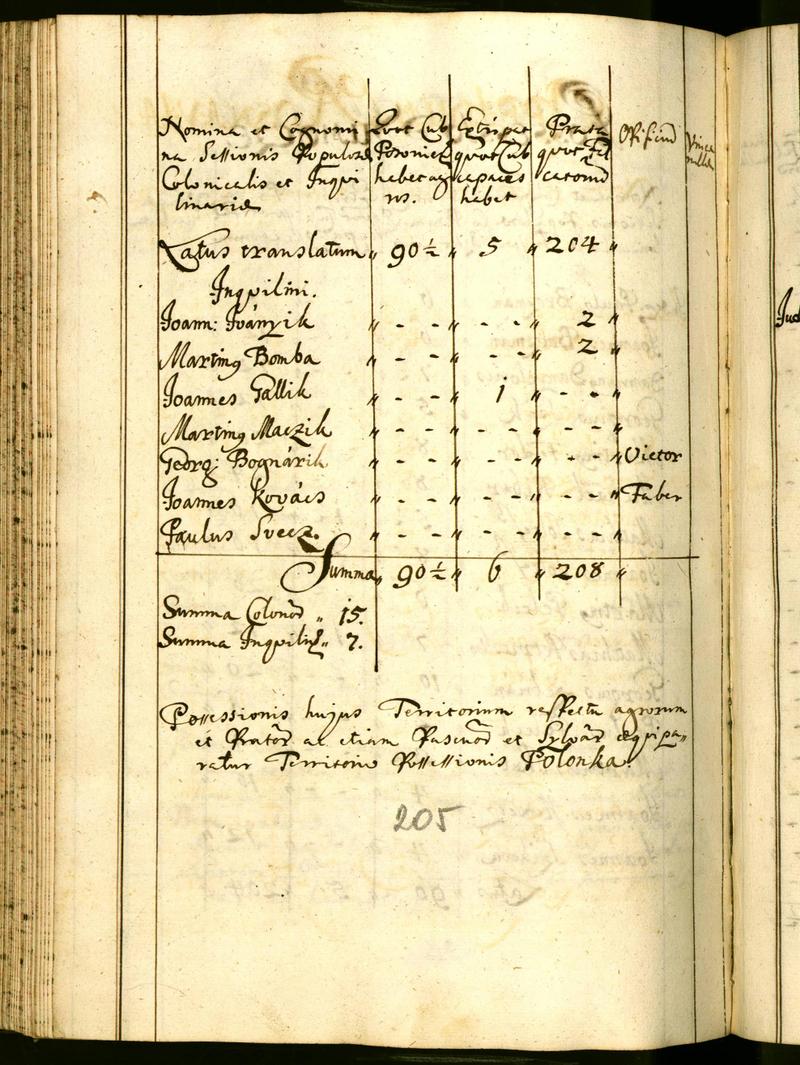 Nomina et Cognomi
na Sessionis Populorū
Colonicalis et Inqui
linariæ
Quot Cub
Posonien
habet ag
ros.
Extirpat
quot Cub
capaces
habet
Prata
quot Fal
catorum
Opificiū
Vinea
nulla
Latus translatum " 90½ " 5 " 204 "
Inqvilini.
Joann: Iványik " - - " - - " 2 "
Martinꝰ Bomba " - - " - - " 2 "
Joannes Gallik " - - " 1 " - - "
Martinꝰ Maczik " - - " - - " - - "
Georg: Bognárik " - - " - - " - - " Vietor
Joannes Kovács " - - " - - " - - " Faber
Paulus Svecz. " - - " - - " - - "
Summa " 90½ " 6 " 208 "
Summa Colonoꝝ " 15.
Summa Inqviliñ " 7.
Possessionis hujus Territorium respectu agrorum
et Pratoꝝ ac etiam Pascuoꝝ et Sylvaꝝ æqvipa"
ratur Territorio Possessionis Polonka.
205
Jud